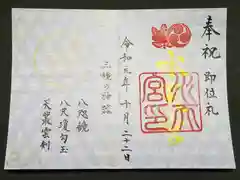 奉祝
即位礼
水天
宮印
令和元年十月二十二日
三種の神器
八咫鏡
八尺瓊勾玉
天叢雲剣